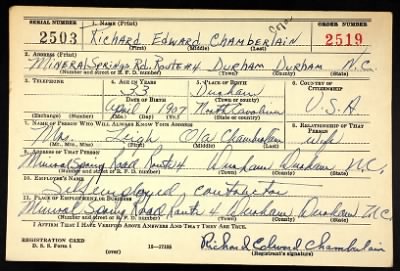 SERIAL NUMBER 1. Name (Print) ORDER NUMBER
2503 Richard Edward Chamberlain 2519
(First) (Middle) (Last)
2. Address (Print)
Mineral Springs Rd. Route #4 Durham Durham N.C.
(Number and street or R. F. D. number) (Town) (County) (State)
3. Telephone 4. Age in Years 5. Place of Birth 6. Country of Citizenship
33 Durham
Date of Birth (Town or county)
April 1907 North Carolina U.S.A
(Exchange) (Number) (Mo.) (Day) (Yr.) (State or country)
7. Name of Person Who Will Always Know Your Address 8. Relationship of That Person
Mrs. Leigh Ola Chamberlain wife
(Mr., Mrs., Miss) (First) (Middle) (Last)
9. Address of That Person
Mineral Spring Road Route 4 Durham Durham N.C.
(Number and street or R. F. D. number) (Town) (County) (State)
10. Employer's Name
Self employed, contractor
11. Place of Employment or Business
Mineral Spring Road Route 4 Durham Durham N.C.
(Number and street or R. F. D. number) (Town) (County) (State)
I Affirm That I Have Verified Above Answers and That They Are True.
REGISTRATION CARD
D. S. S. Form 1 (over) 16—17105 Richard Edward Chamberlain
(Registrant's signature)